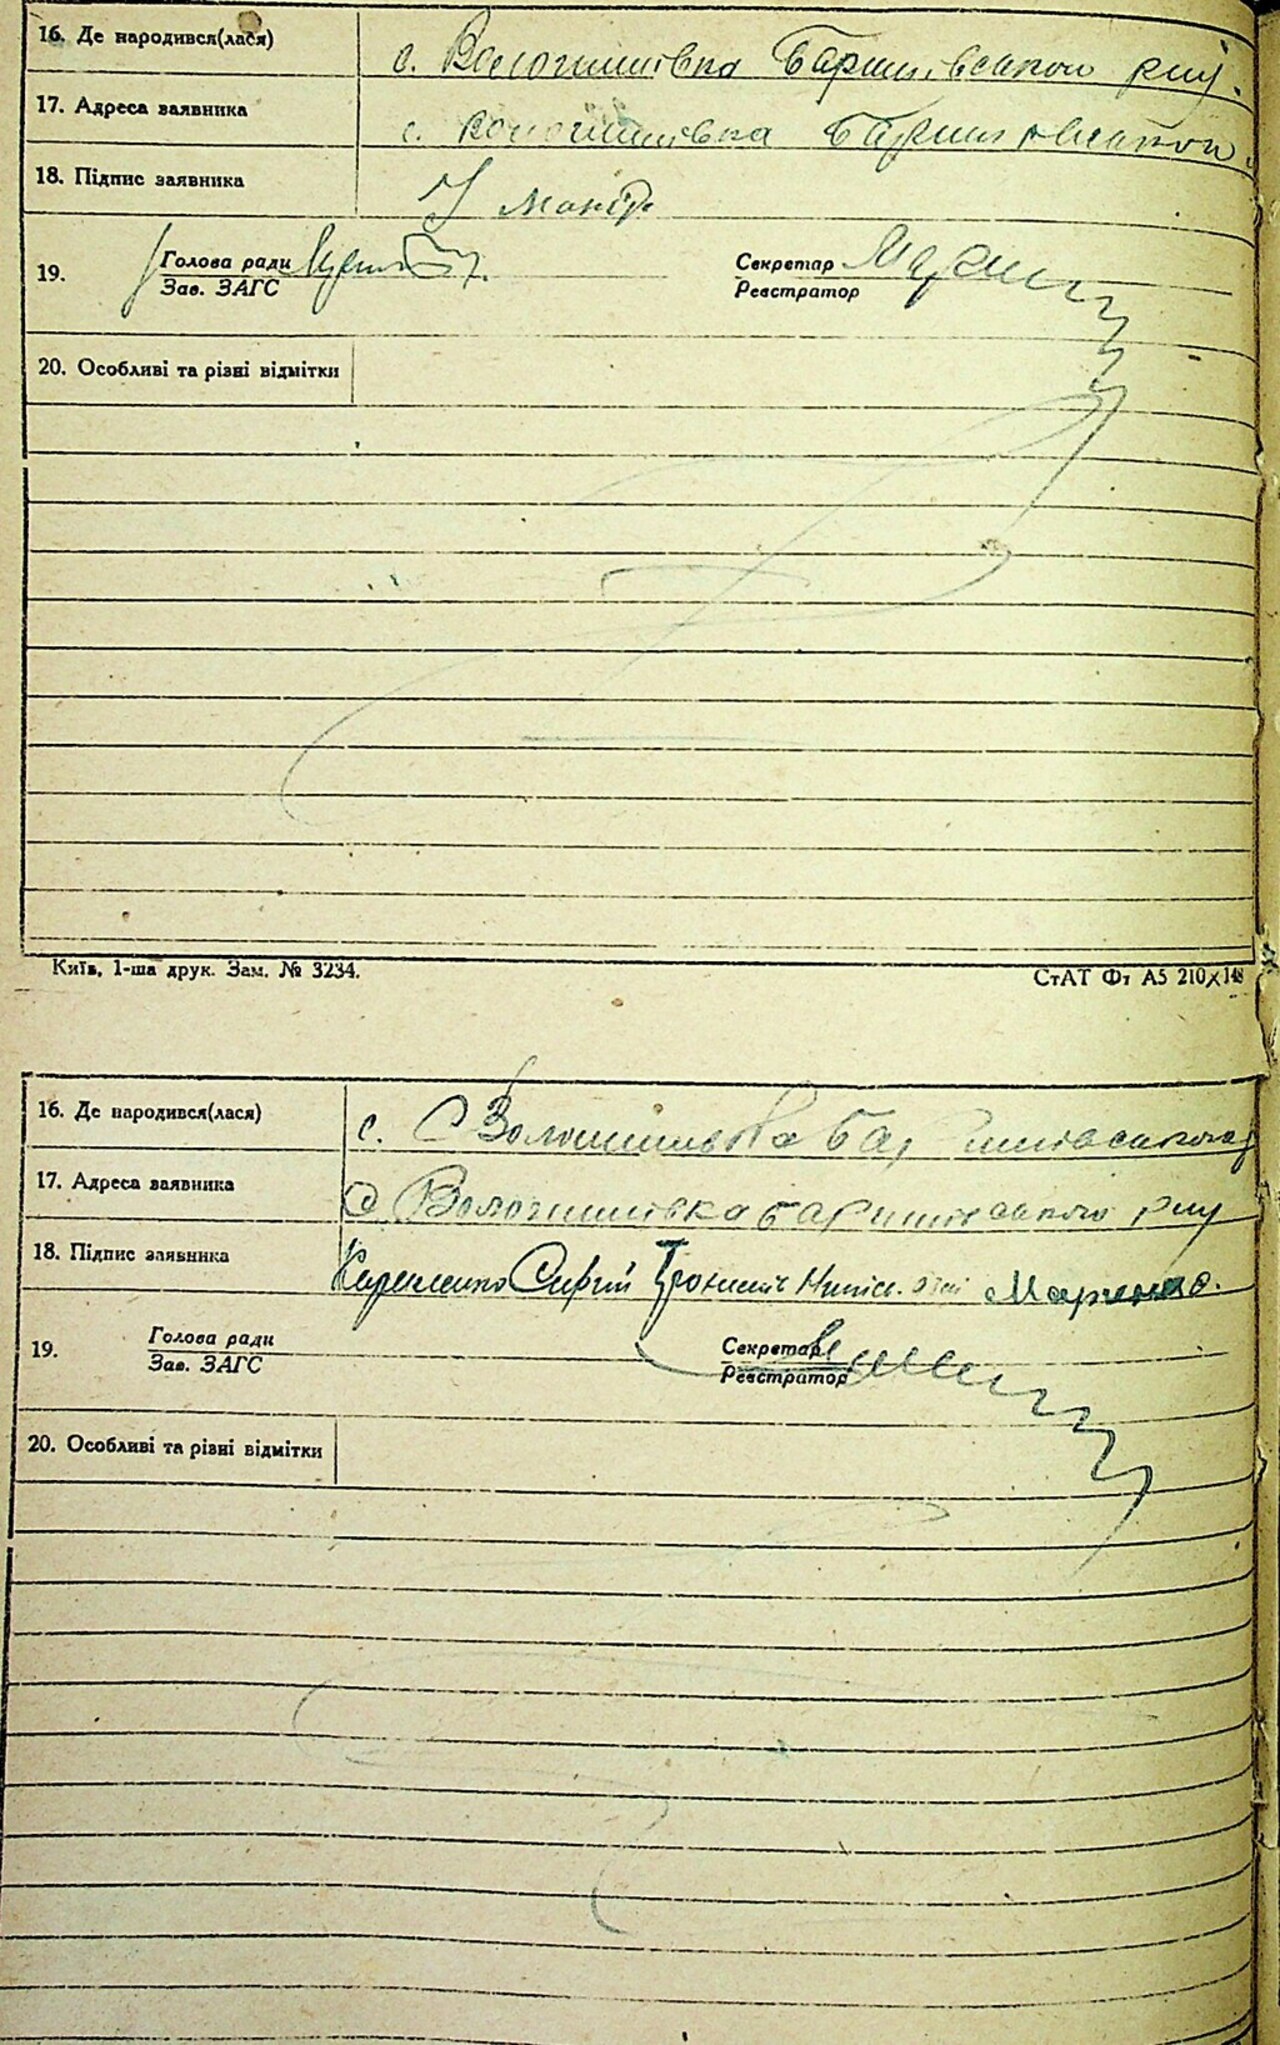 16. Де народився(лася) с. Волошинівка Баришівського р-ну.
17. Адреса заявника с. Волошинівка Баришівського
18. Підпис заявника
19. Голова ради Секретар
Зав. ЗАГС Реєстратор
20. Особливі та різні відмітки
Київ, 1-ша друк. Зам. № 3234. СтАТ Фт А5 210×148
16. Де народився(лася) с. Волошинівка Баришівського
17. Адреса заявника с. Волошинівка Баришівського р-ну
18. Підпис заявника Сергій
19. Голова ради Секретар
Зав. ЗАГС Реєстратор
20. Особливі та різні відмітки